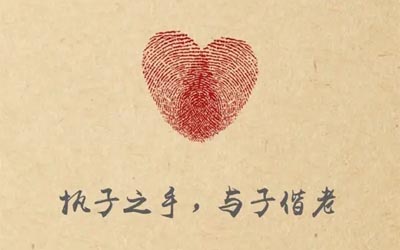 执子之手，与子偕老